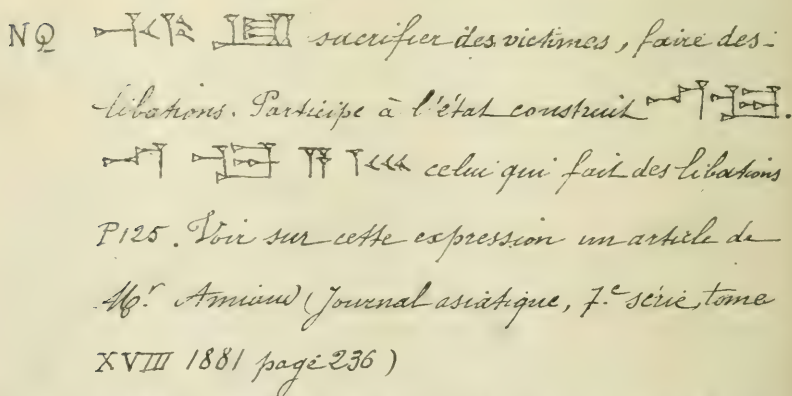 NQ sacrifier des victimes, faire des
libations. Participe à l'état construit 𒈾 𒀝.
𒈾 𒀝 𒀀 𒈨𒌍 celui qui fait des libations
P125. Voir sur cette expression un article de
Mr. Amiaud (Journal asiatique, 7.e série, tome
XVIII 1881 page 236)